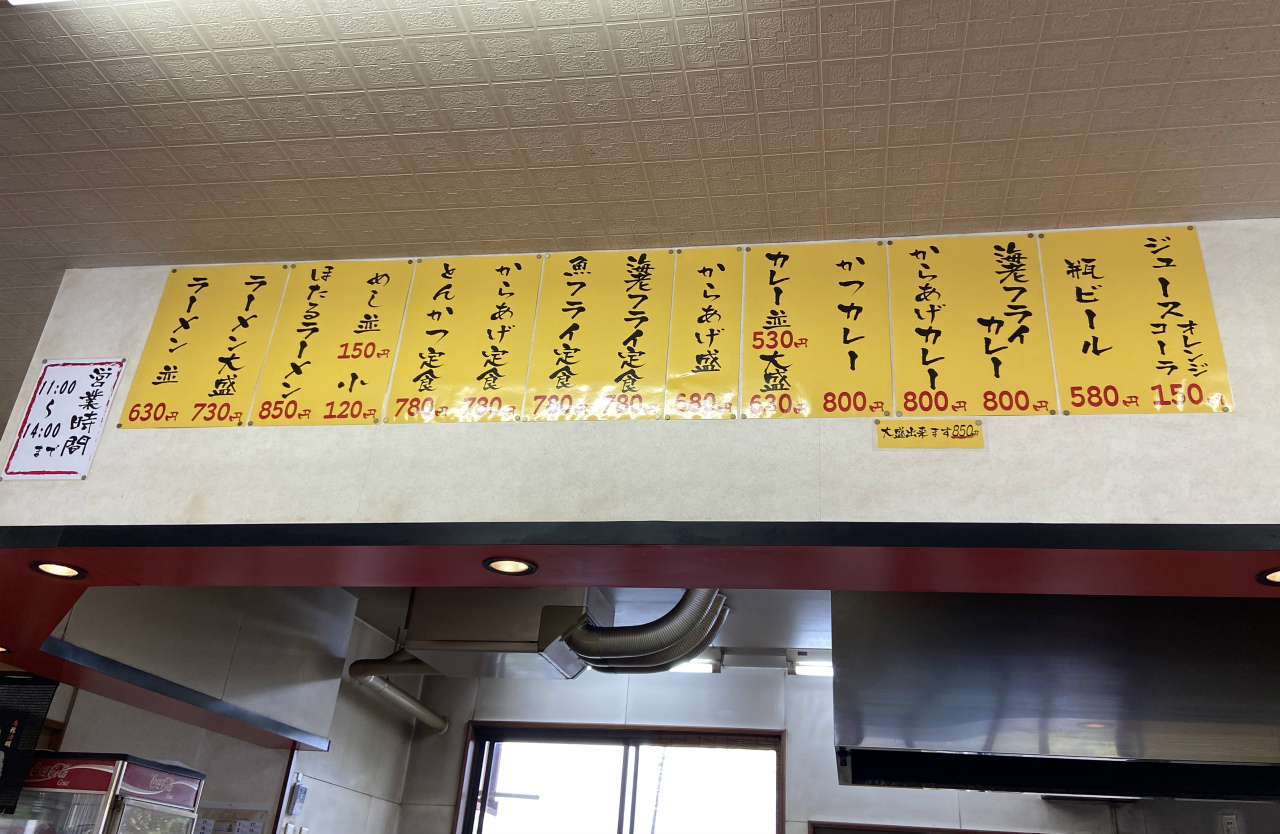 ジュース オレンジ コーラ 150円
瓶ビール 580円
海老フライカレー 800円
からあげカレー 800円
大盛出来ます850円
かつカレー 800円
カレー並 530円 大盛 630円
からあげ盛 680円
海老フライ定食 780円
魚フライ定食 780円
からあげ定食 780円
とんかつ定食 780円
めし並 150円 小 120円
ほたるラーメン 850円
ラーメン大盛 730円
ラーメン 並 630円
営業時間
11:00
〜
14:00
まで
Coca-Cola
Coca-Cola